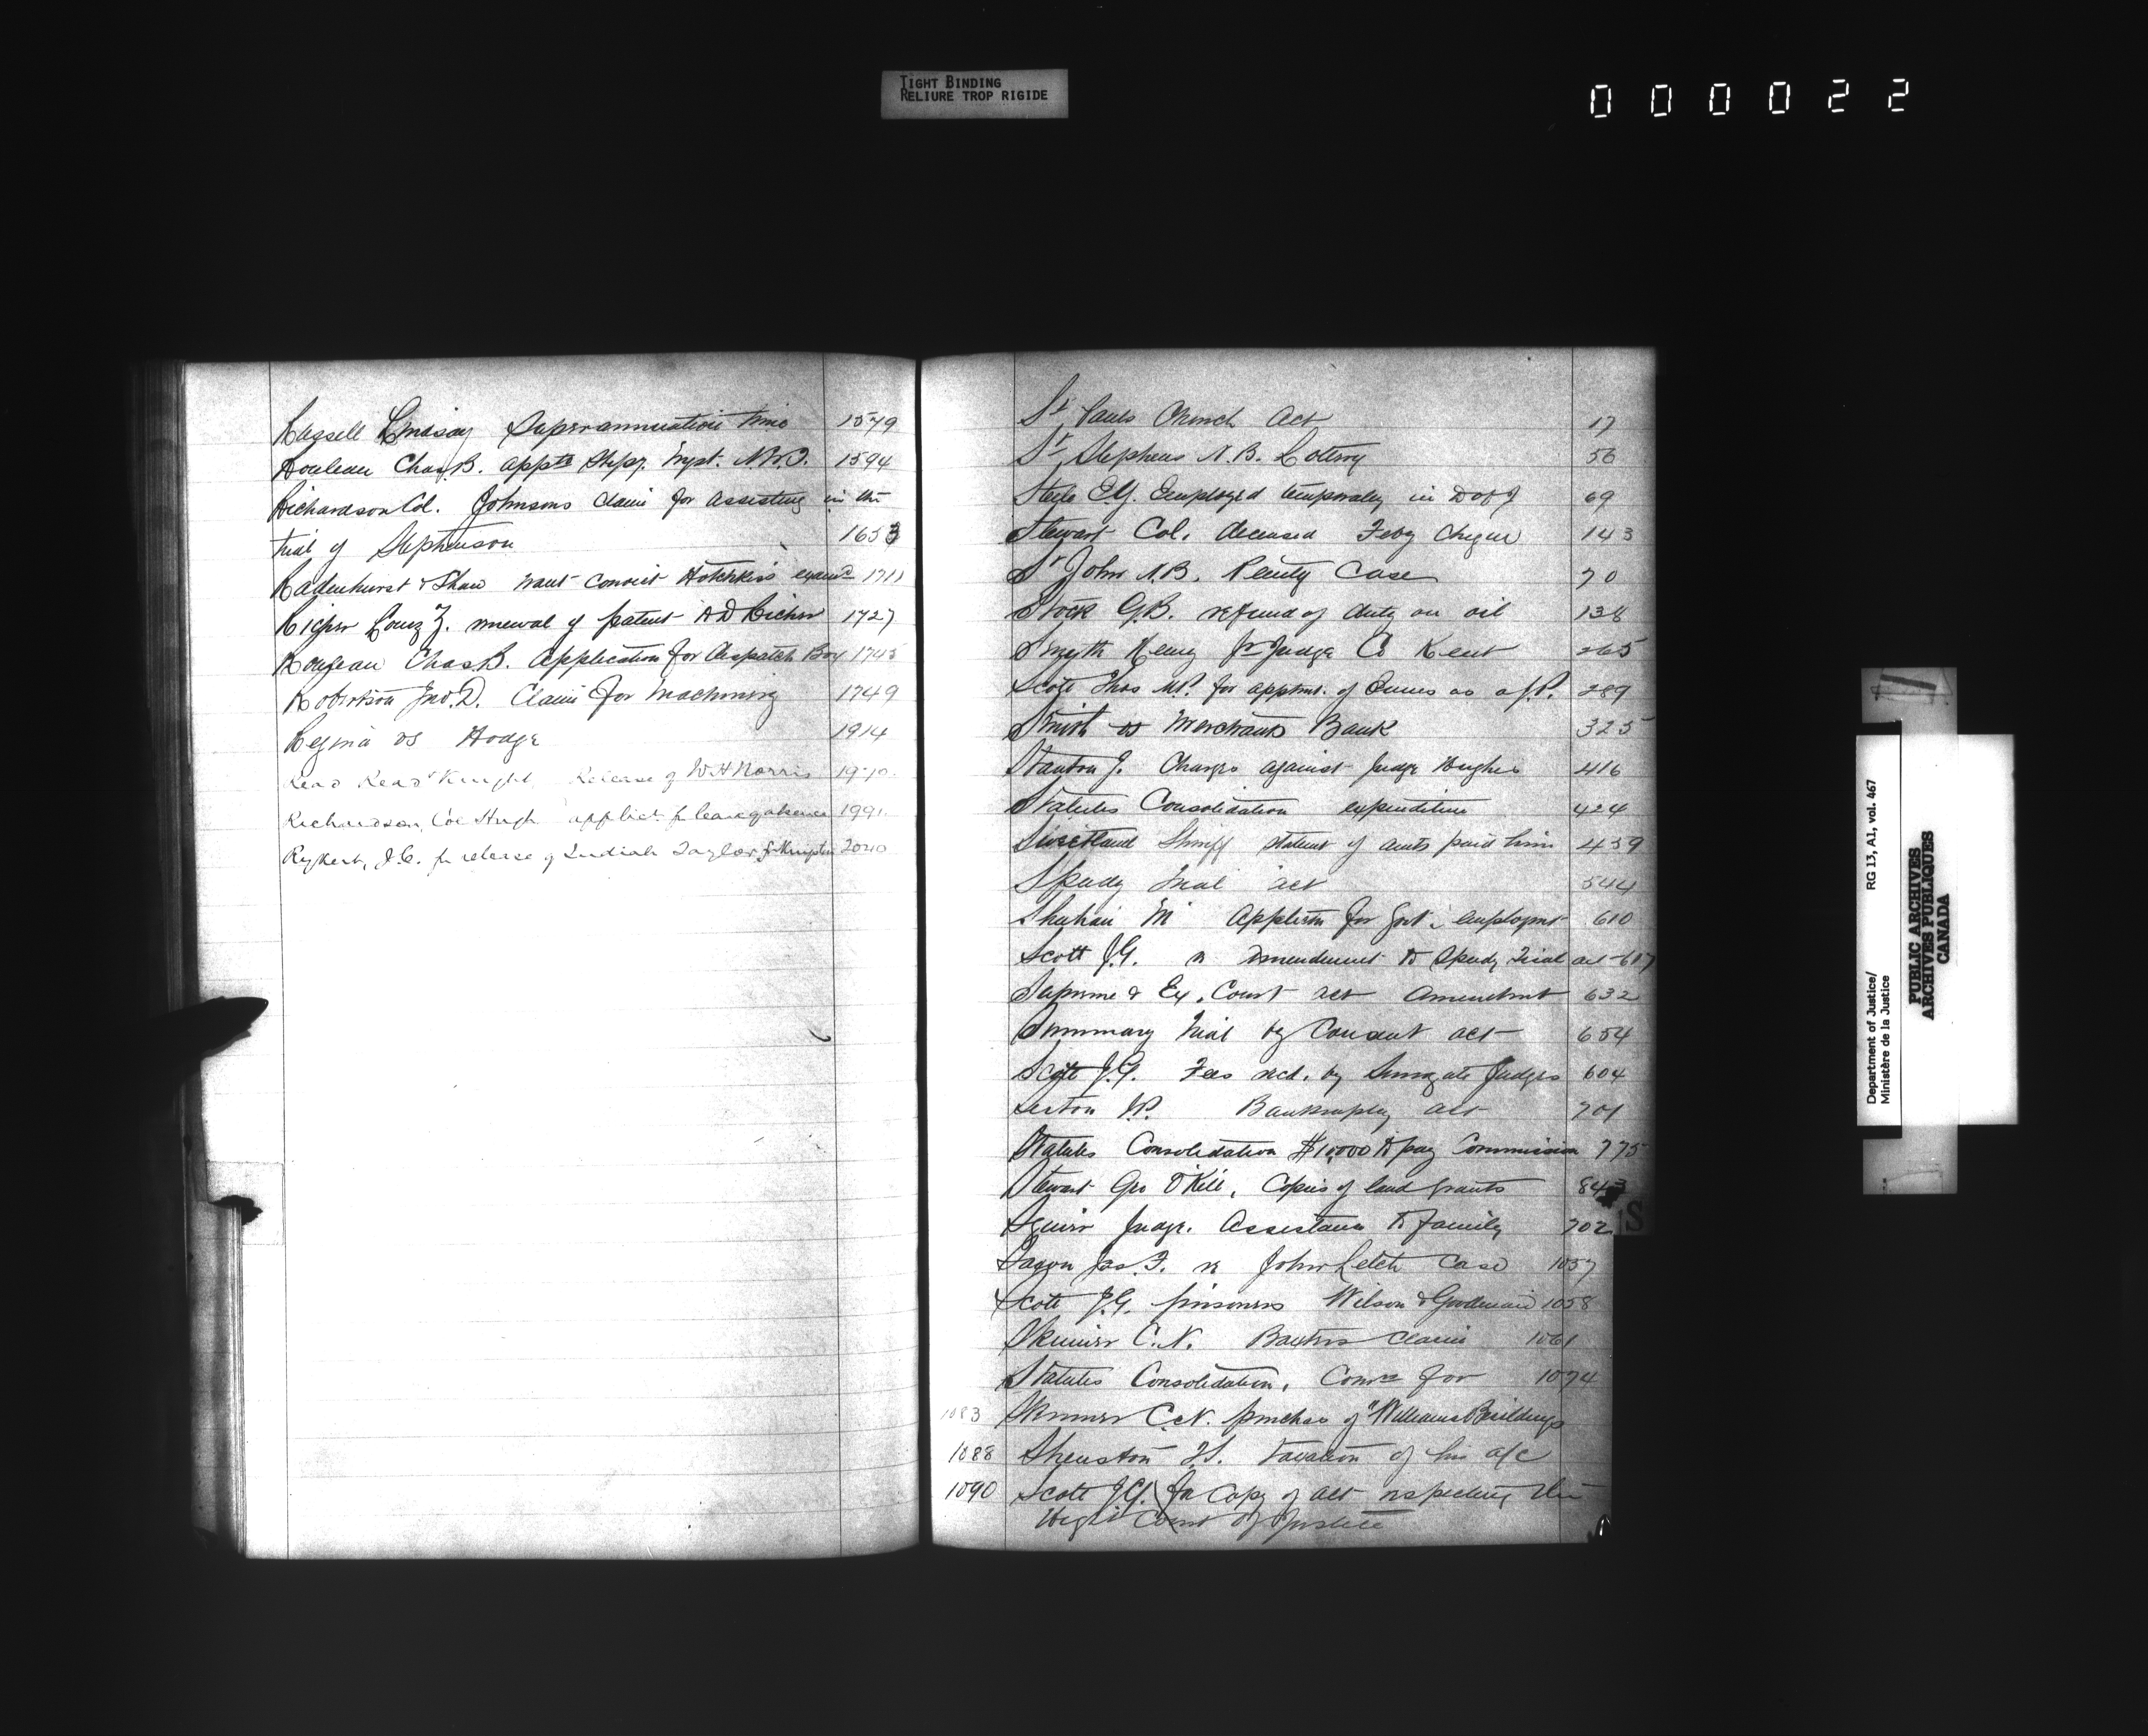 TIGHT BINDING
RELIURE TROP RIGIDE
000022
Russell Lindsay Superannuation time 1579
Rouleau Chas. B. appt. Stipy. Mgst. N.W.T. 1594
Richardson Col. Johnsons claim for assisting in the
trial of Stephenson 1653
Radenhurst & Shaw want convict Hotchkiss 1711
Richer Louis Z. renewal of patent A D Richer 1727
Rouleau Chas. B. Application for Despatch Box 1745
Robertson Jno. D. Claim for Machinery 1749
Regina vs Hodge 1914
Read Read & Knight Release of W H Norris
Richardson, Col Hugh applict. for leave of absence 1991
Rykert, J.C. for release of Taylor 2040
St Pauls Church Act 17
St Stephens N.B. Lottery 56
Steele Employed temporaley in D of J 69
Stewart Col. deceased Feby cheque 143
St John N.B. Penity Case 70
Stock G.B. refund of duty on oil 138
Smyth Henry Jr Judge Co Kent 265
Scott Thos for apptmt. of as a J.P. 289
Smith vs Merchants Bank 325
Stanton J. Charges against Judge Hughes 416
Statutes Consolidation expenditure 424
Sweetland Sheriff statmt of amts paid him 439
Speedy trial act 544
Shehan M Applictn for Govt. employmt 610
Scott J.G. re Amendment to Speedy Trial act 617
Supreme & Ex. Court act Amendmt 632
Summary trial by Consent act 654
Scott J.G. Fees recd. by Surrogate Judges 604
Sexton J.P. Bankruptcy act 701
Statutes Consolidation $10,000 to pay Commission 775
Stewart Geo O'Kill, Copies of land grants 843
Squier Judge. Assistance to family 702
Jas. F. re John Letch Case 1057
Scott J.G. prisoners Wilson & Goodwin 1058
Skinner C.N. Baxters claim 1061
Statutes Consolidation, Comrs for 1074
1083 Skinner C.N. purchase of "Williams Buildings
1088 Shenston T.S. taxation of his a/c
1090 Scott J.G. for Copy of act respecting the
High Court of Justice
S
Department of Justice/
Ministère de la Justice
RG 13, A1, vol. 467
PUBLIC ARCHIVES
ARCHIVES PUBLIQUES
CANADA